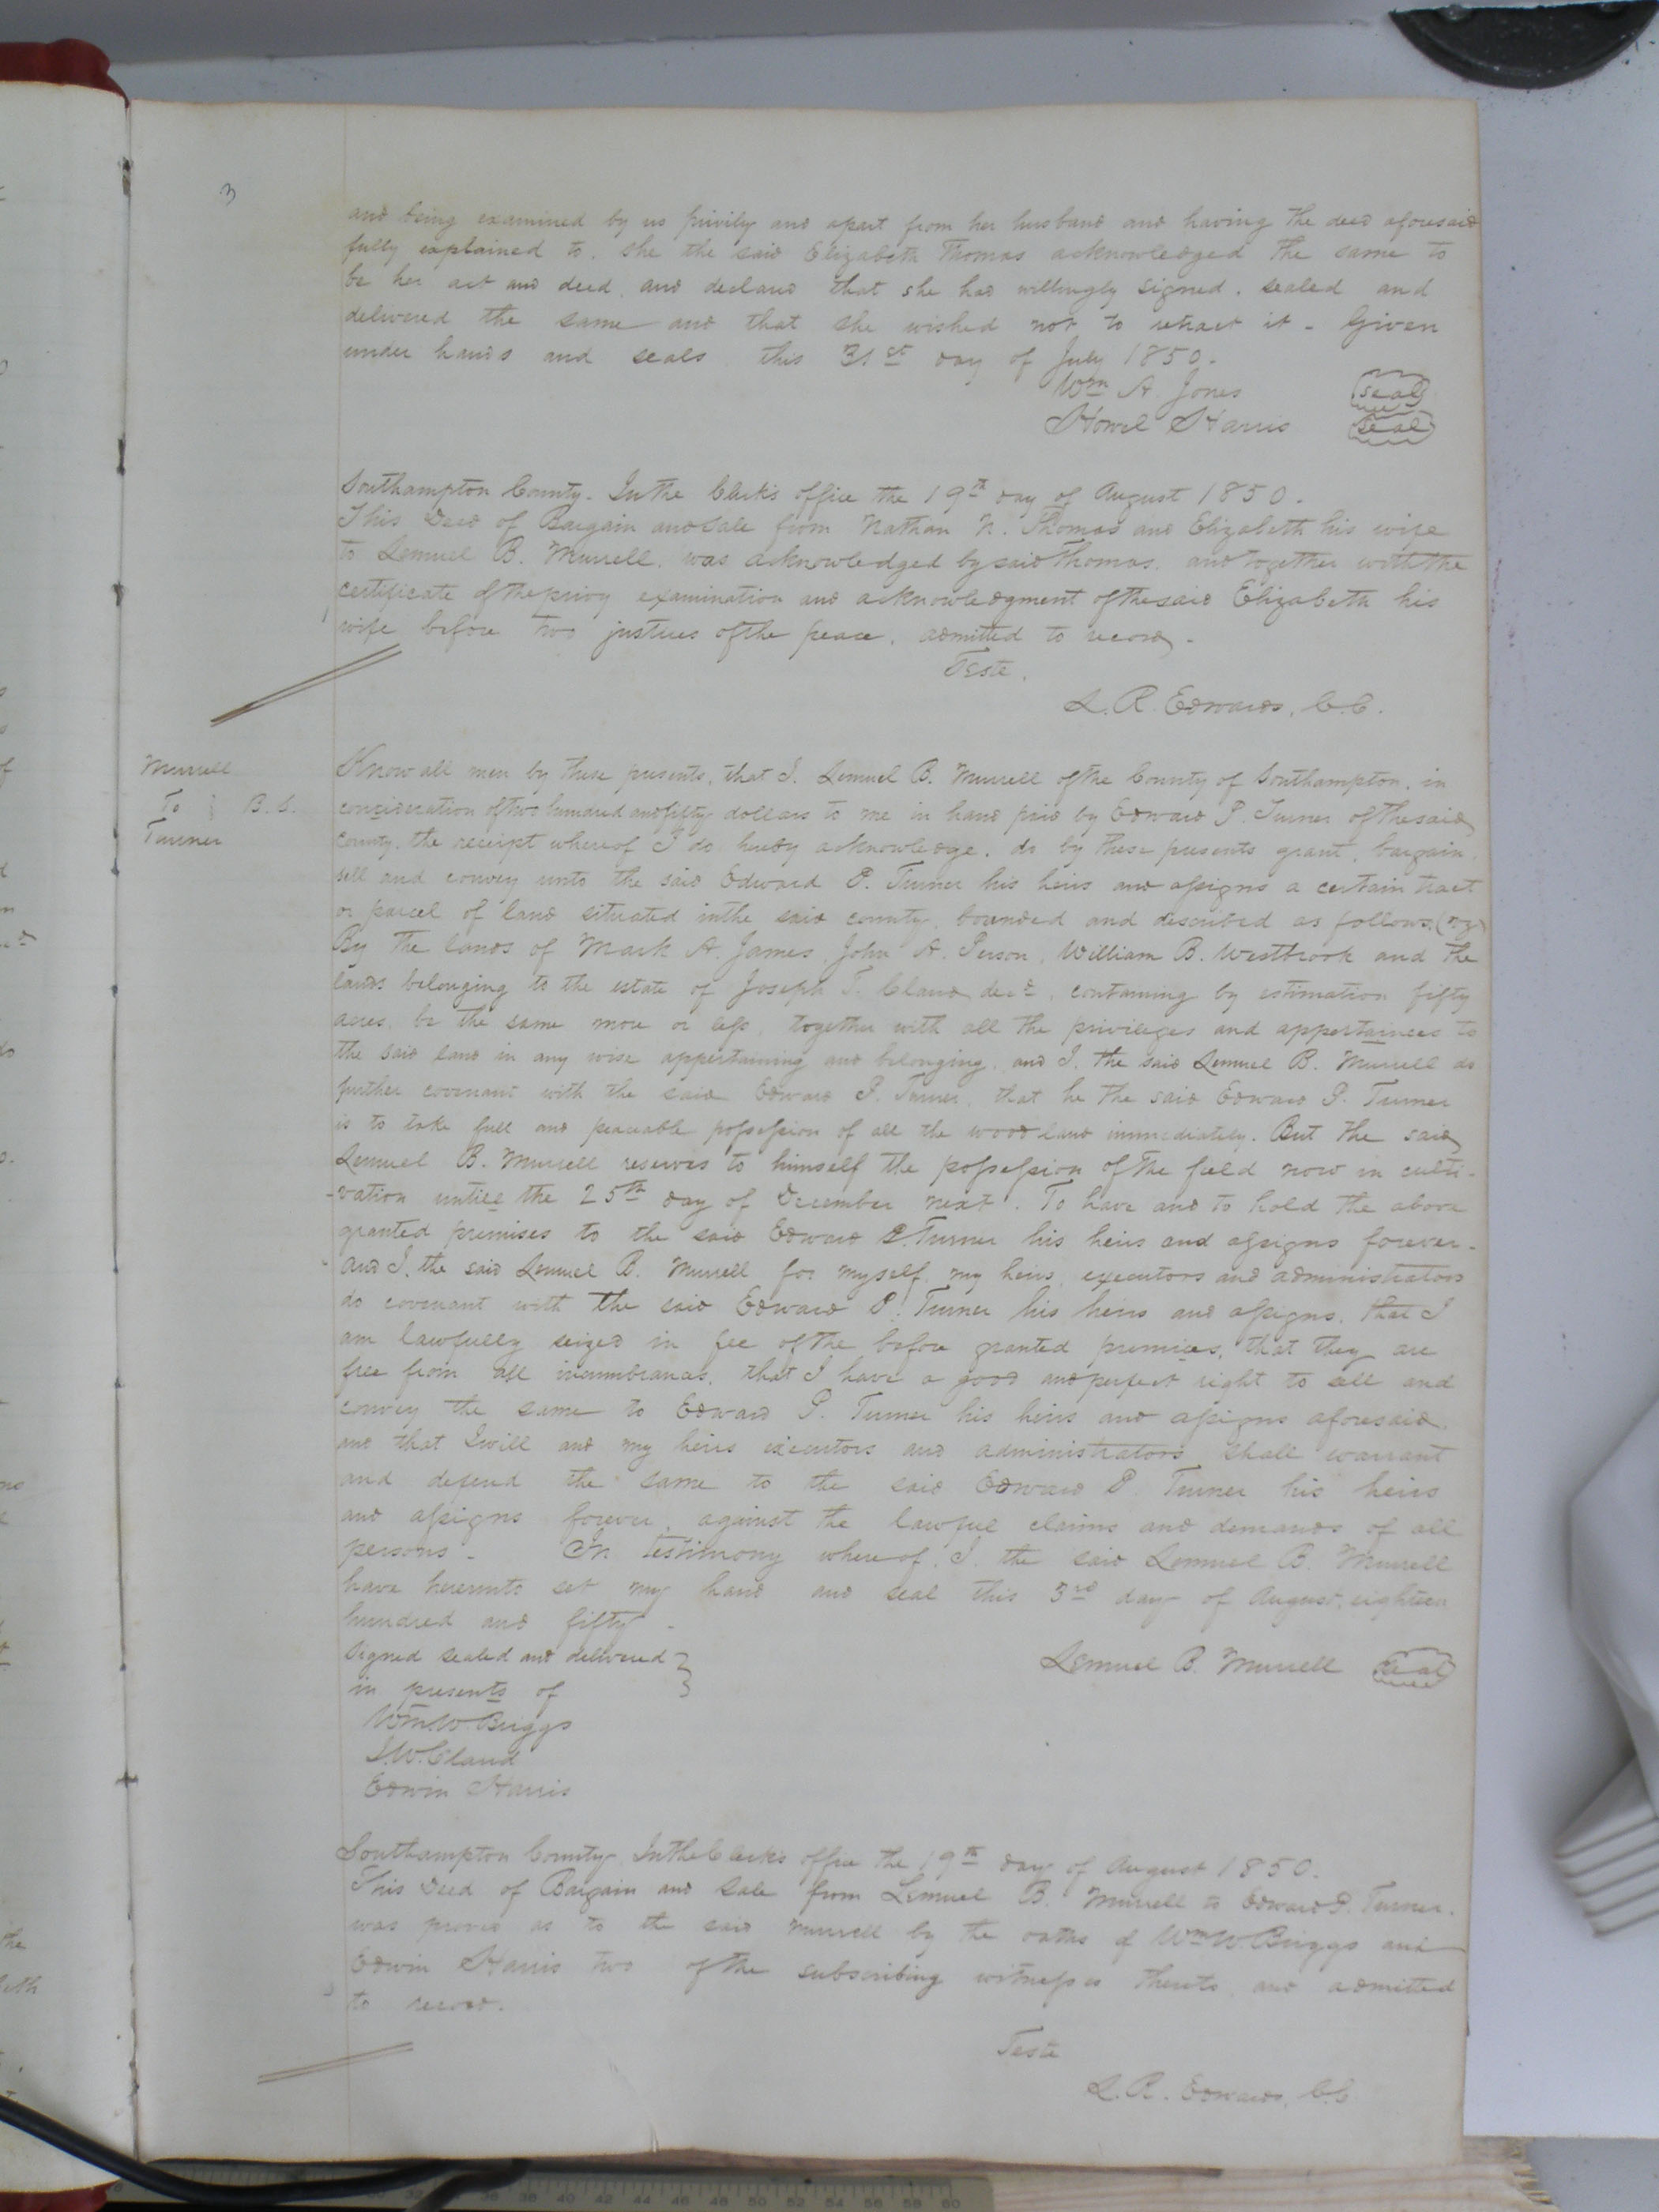 3
and being examined by us privily and apart from her husband and having the deed aforesaid
fully explained to, she the said Elizabeth Thomas acknowledged the same to
be her act and deed, and declard that she had willingly signed, sealed and
delivered the same and that she wished not to retract it - Given
under hands and seals this 31st day of July 1850.
Wm A. Jones seal
Howel Harris seal
Southampton County. In the Clerk's office the 19th day of August 1850.
This Deed of Bargain and Sale from Nathan N. Thomas and Elizabeth his wife
to Lemuel B. Murrell, was acknowledged by said Thomas, and together with the
certificate of the privy examination and acknowledgment of the said Elizabeth his
wife before two justices of the peace, admitted to record -
Teste,
L. R. Edwards, C.C.
Murrell
To } B. S.
Turner
Know all men by these presents, that I, Lemuel B. Murrell of the County of Southampton, in
consideration of two hundred and fifty dollars to me in hand paid by Edward P. Turner of the said
County, the receipt whereof I do hereby acknowledge, do by these presents grant, bargain,
sell and convey unto the said Edward P. Turner his heirs and assigns a certain tract
or parcel of land situated in the said county, bounded and described as follows,
By the lands of Mark A. James, John A. Person, William B. Westbrook and the
lands belonging to the estate of Joseph T. Claud decd, containing by estimation fifty
acres, be the same more or less, together with all the privileges and appertainces to
the said land in any wise appertaining and belonging, and I, the said Lemuel B. Murrell do
further covenant with the said Edward P. Turner, that he the said Edward P. Turner
is to take full and peaceable possession of all the wood land immediately. But the said
Lemuel B. Murrell reserves to himself the possession of the field now in culti-
-vation untill the 25th day of December next. To have and to hold the above
granted premises to the said Edward P. Turner his heirs and assigns forever -
And I, the said Lemuel B. Murrell for myself, my heirs, executors and administrators
do covenant with the said Edward P. Turner his heirs and assigns, that I
am lawfully seized in fee of the before granted premises, that they are
free from all incumbrances, that I have a good and perfect right to sell and
convey the same to Edward P. Turner his heirs and assigns aforesaid,
and that I will and my heirs executors and administrators shall warrant
and defend the same to the said Edward P. Turner his heirs
and assigns forever, against the lawful claims and demands of all
persons - In testimony whereof, I, the said Lemuel B. Murrell
have hereunto set my hand and seal this 3rd day of August, eighteen
hundred and fifty -
Signed sealed and delivered } Lemuel B. Murrell seal
in presents of
Wm. W. Briggs
J. W. Claud
Edwin Harris
Southampton County. In the Clerk's office the 19th day of August 1850.
This Deed of Bargain and Sale from Lemuel B. Murrell to Edward P. Turner,
was proved as to the said Murrell by the oaths of Wm W. Briggs and
Edwin Harris two of the subscribing witnesses thereto, and admitted
to record.
Teste
L. R. Edwards, C.C